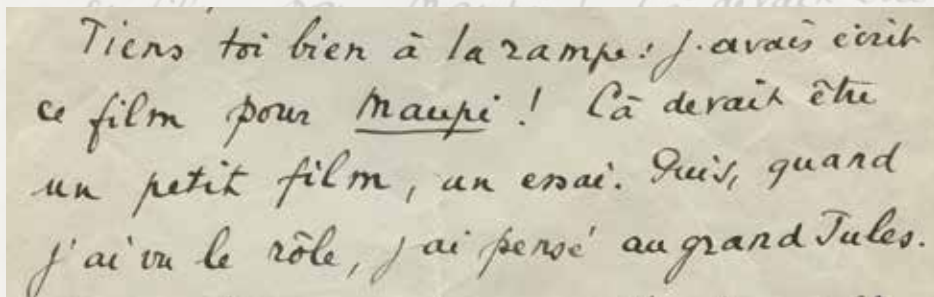 Tiens toi bien à la rampe : j'avais écrit
ce film pour Maupi ! Çà devait être
un petit film, un essai. Puis, quand
j'ai vu le rôle, j'ai pensé au grand Jules.